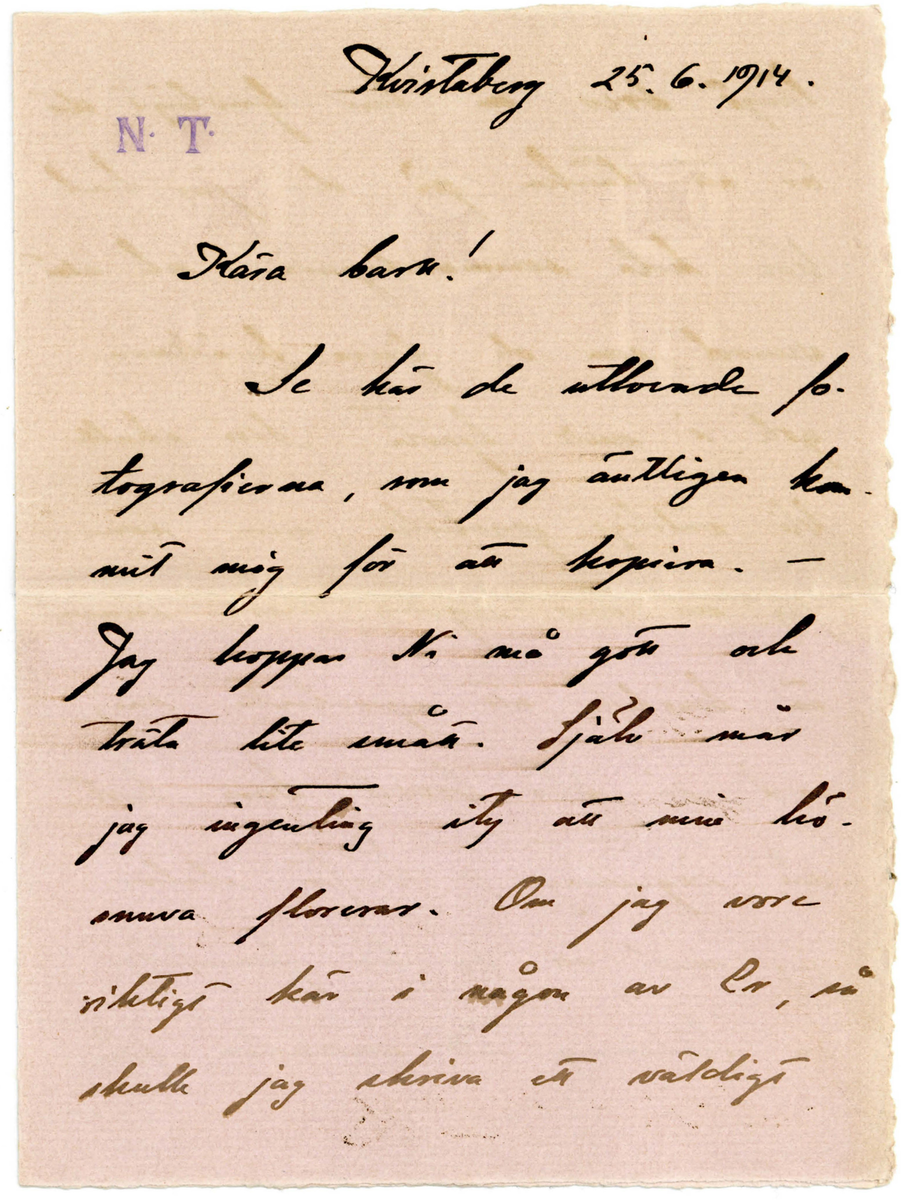 Kvistaberg 25.6.1914.
N. T.
Kära barn!
Se här de utlovade fo-
tografierna, som jag äntligen kom-
mit mig för att kopiera. –
Jag hoppas Ni må gott och
träta lite smått. Själv mår
jag ingenting ity att min hö-
snuva florerar. Om jag vore
riktigt kär i någon av Er, så
skulle jag skriva ett väldigt